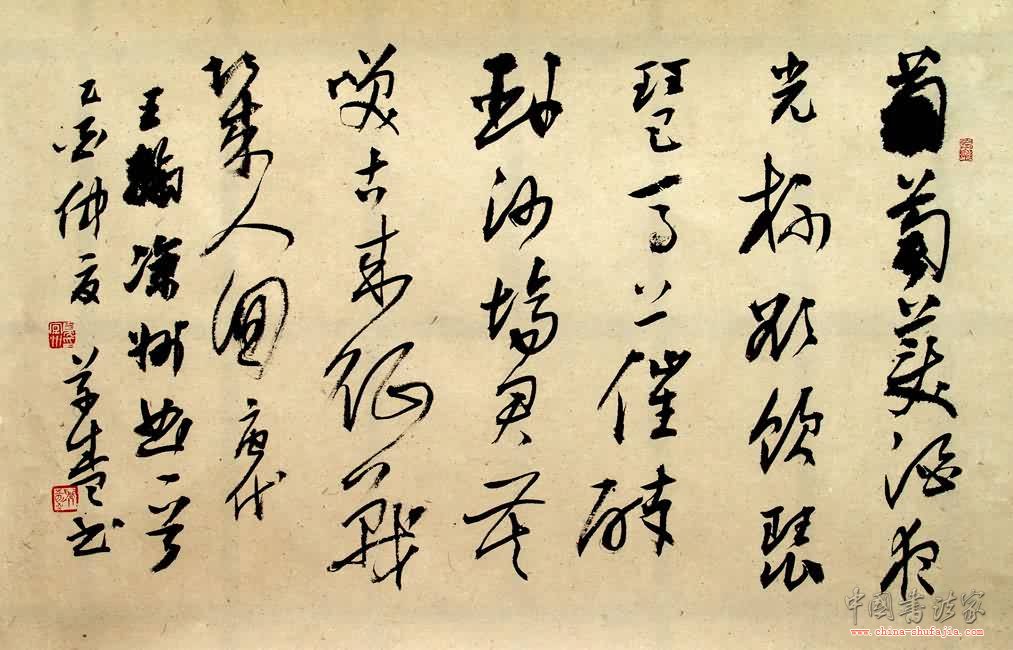 葡萄美酒夜
光杯欲飲琵
琶馬上催醉
卧沙場君莫
咲古来征戰
幾人回 唐代
王翰凉州曲一首
乙酉仲夏
中國書法家
www.china-shufajia.com